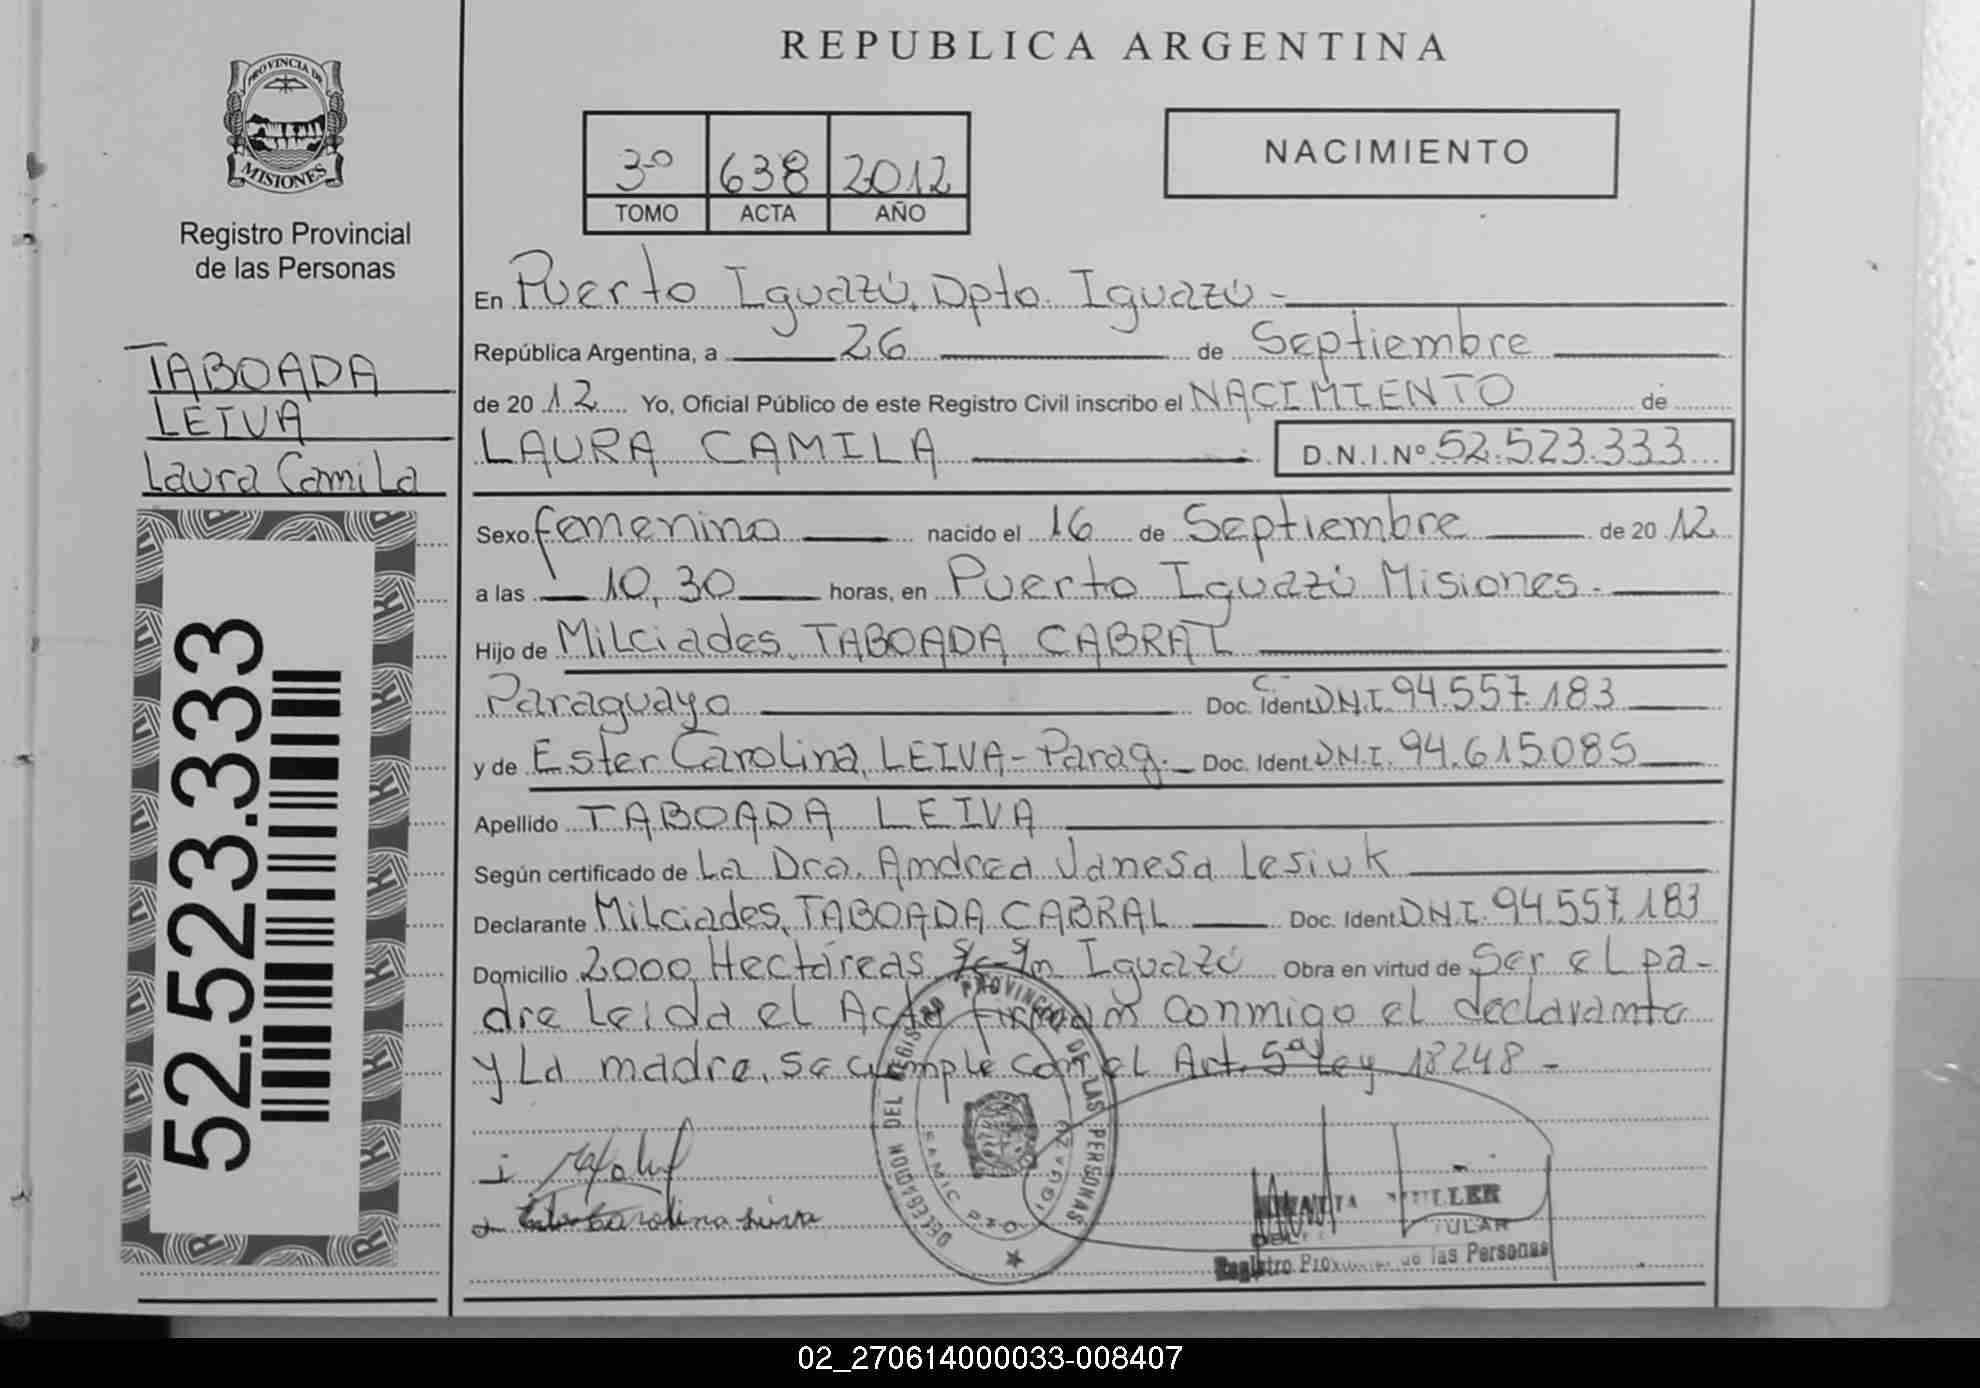 REPUBLICA ARGENTINA
PROVINCIA DE
MISIONES
Registro Provincial
de las Personas
3º 638 2012
TOMO ACTA AÑO
NACIMIENTO
TABOADA
LEIVA
Laura Camila
52.523.333
En Puerto Iguazú, Dpto. Iguazú -
República Argentina, a 26 de Septiembre
de 2012 Yo, Oficial Público de este Registro Civil inscribo el NACIMIENTO de
LAURA CAMILA D.N.I.Nº 52.523.333
Sexo femenino nacido el 16 de Septiembre de 2012
a las 10,30 horas, en Puerto Iguazú Misiones.
Hijo de Milciades, TABOADA CABRAL
Paraguayo Doc. Ident. D.N.I. 94.557.183
y de Ester Carolina, LEIVA - Parag. Doc. Ident. D.N.I. 94.615.085
Apellido TABOADA LEIVA
Según certificado de La Dra. Andrea Vanesa Lesiuk
Declarante Milciades, TABOADA CABRAL Doc. Ident. D.N.I. 94.557.183
Domicilio 2000 Hectáreas Iguazú Obra en virtud de Ser el pa-
dre Leida el Acta firman conmigo el declarante
y La madre, se cumple con el Art. 5ª Ley 18248 -
DELEGACION DEL REGISTRO PROVINCIAL DE LAS PERSONAS
IGUAZU
Carolina
MULLER
TULAR
Registro Provincial de las Personas
02_270614000033-008407